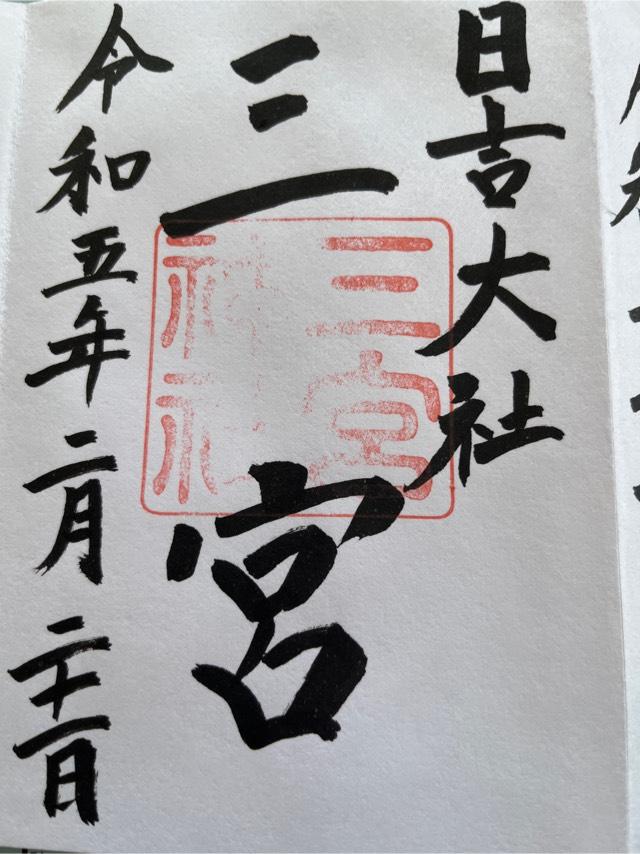 日吉大社
三宮
三宮
神社
令和五年二月二十一日